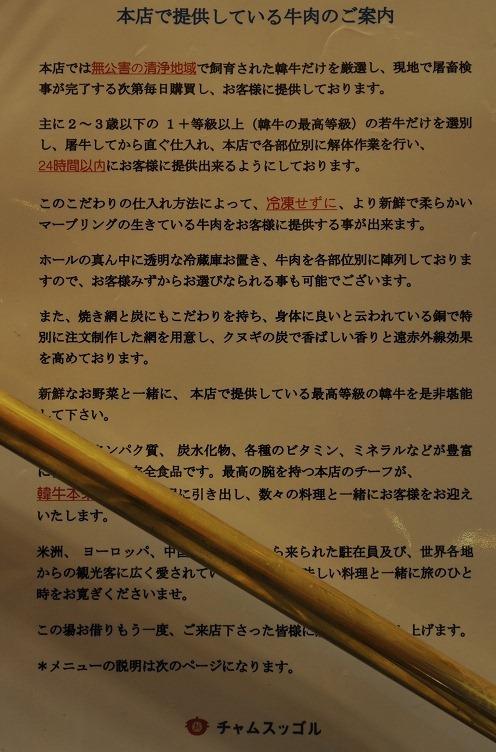 本店で提供している牛肉のご案内
本店では無公害の清浄地域で飼育された韓牛だけを厳選し、現地で屠畜検
事が完了する次第毎日購買し、お客様に提供しております。
主に２～３歳以下の １＋等級以上（韓牛の最高等級）の若牛だけを選別
し、屠牛してから直ぐ仕入れ、本店で各部位別に解体作業を行い、
24時間以内にお客様に提供出来るようにしております。
このこだわりの仕入れ方法によって、冷凍せずに、より新鮮で柔らかい
マーブリングの生きている牛肉をお客様に提供する事が出来ます。
ホールの真ん中に透明な冷蔵庫お置き、牛肉を各部位別に陣列しておりま
すので、お客様みずからお選びなられる事も可能でございます。
また、焼き網と炭にもこだわりを持ち、身体に良いと云われている銅で特
別に注文制作した網を用意し、クヌギの炭で香ばしい香りと遠赤外線効果
を高めております。
新鮮なお野菜と一緒に、 本店で提供している最高等級の韓牛を是非堪能
して下さい。
ンパク質、 炭水化物、各種のビタミン、ミネラルなどが豊富
全食品です。最高の腕を持つ本店のチーフが、
韓牛本来 に引き出し、数々の料理と一緒にお客様をお迎え
いたします。
米洲、 ヨーロッパ、中国 ら来られた駐在員及び、世界各地
からの観光客に広く愛されてい 味しい料理と一緒に旅のひと
時をお寛ぎくださいませ。
この場お借りもう一度、ご来店下さった皆様に 上げます。
＊メニューの説明は次のページになります。
チャムスッゴル